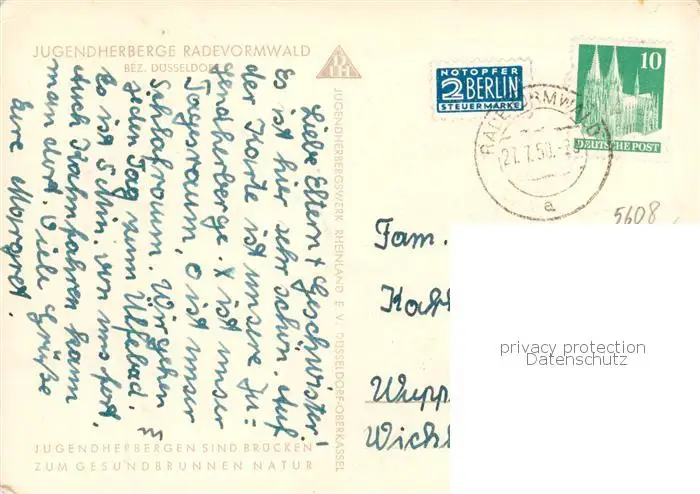 JUGENDHERBERGE RADEVORMWALD
BEZ. DÜSSELDORF
Liebe Eltern + Geschwister!
Es ist hier sehr schön. Auf
der Karte ist unsere Ju=
gendherberge. X ist unser
Tagesraum, O ist unser
Schlafraum. Wir gehen
jeden Tag zum Ülfebad.
Es ist 5 Min. von uns fort.
Auch Kahnfahren kann
man dort. Viele Grüße
Eure Margret.
JUGENDHERBERGEN SIND BRÜCKEN
ZUM GESUNDBRUNNEN NATUR
JUGENDHERBERGSWERK RHEINLAND E. V. DÜSSELDORF-OBERKASSEL
NOTOPFER
2 BERLIN
STEUERMARKE
10
DEUTSCHE POST
RADEVORMWALD
27.7.50
a
5608
Fam.
Wupp
privacy protection
Datenschutz